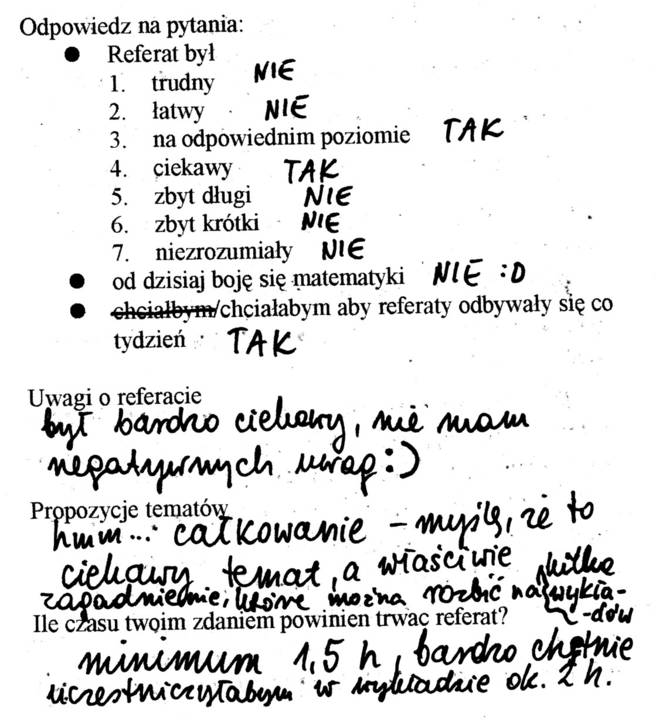 Odpowiedz na pytania:
● Referat był
1. trudny NIE
2. łatwy NIE
3. na odpowiednim poziomie TAK
4. ciekawy TAK
5. zbyt długi NIE
6. zbyt krótki NIE
7. niezrozumiały NIE
● od dzisiaj boję się matematyki NIE :D
● chciałbym/chciałabym aby referaty odbywały się co
tydzień TAK
Uwagi o referacie
był bardzo ciekawy, nie mam
negatywnych uwag :)
Propozycje tematów
hmm... całkowanie – myślę, że to
ciekawy temat, a właściwie
zagadnienie, które można rozbić na kilka wykła-
-dów
Ile czasu twoim zdaniem powinien trwac referat?
minimum 1,5 h, bardzo chętnie
uczestniczyłabym w wykładzie ok. 2 h.